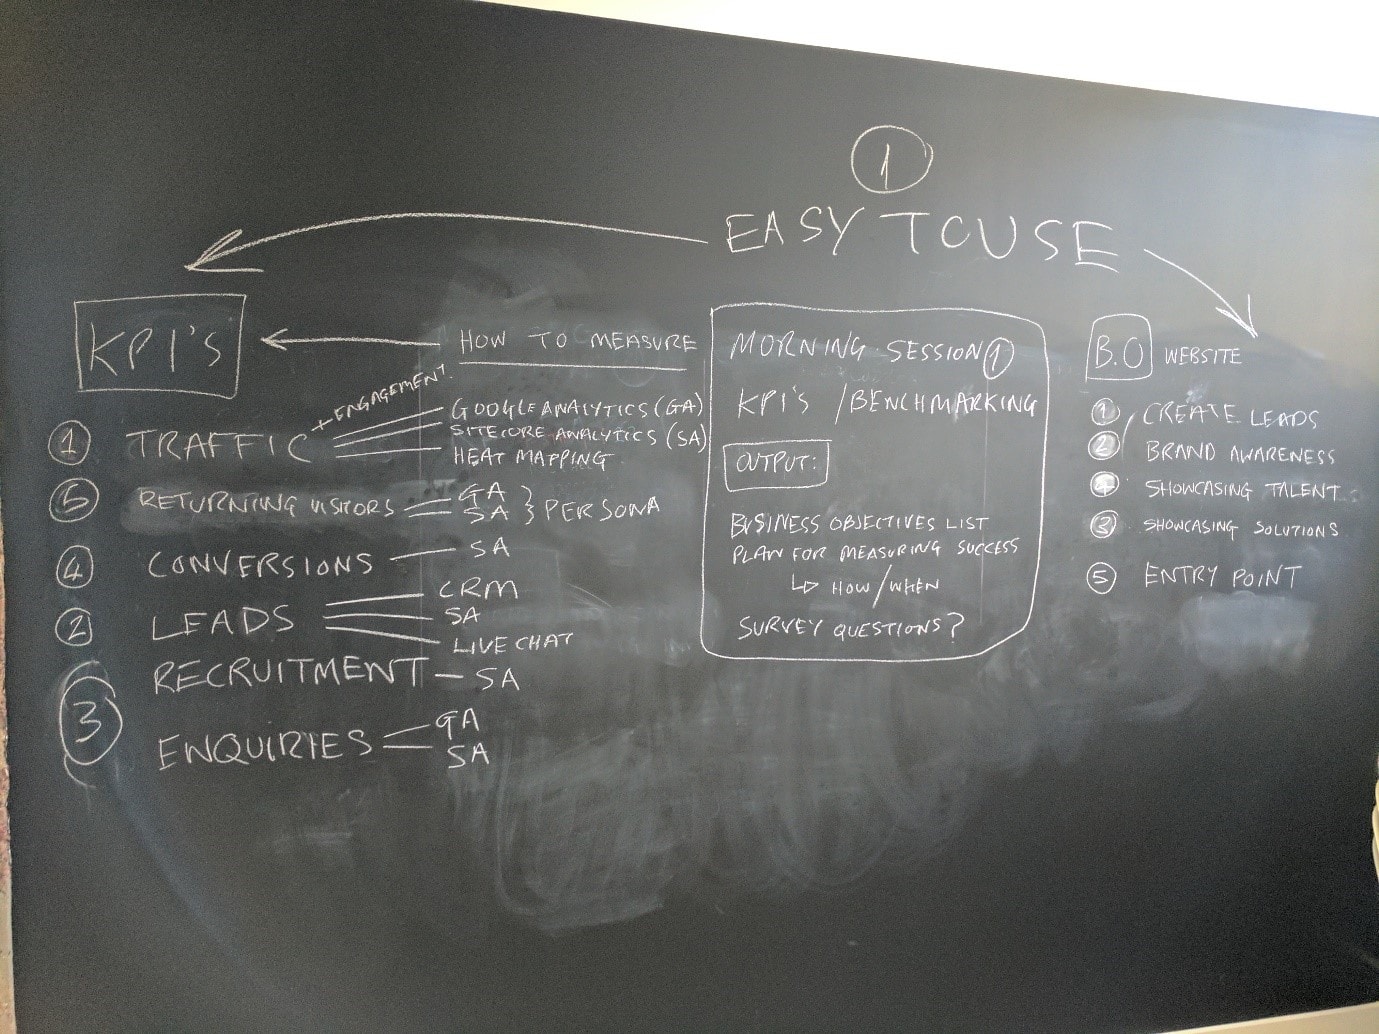 1
EASY TO USE
KPI'S
HOW TO MEASURE
+ ENGAGEMENT
1 TRAFFIC
GOOGLE ANALYTICS (GA)
SITECORE ANALYTICS (SA)
HEAT MAPPING
5 RETURNING VISITORS
GA
SA
} PERSONA
4 CONVERSIONS
SA
2 LEADS
CRM
SA
LIVE CHAT
RECRUITMENT - SA
3
ENQUIRIES
GA
SA
MORNING SESSION 1
KPI'S / BENCHMARKING
OUTPUT:
BUSINESS OBJECTIVES LIST
PLAN FOR MEASURING SUCCESS
↳ HOW/WHEN
SURVEY QUESTIONS?
B.O WEBSITE
1 CREATE LEADS
2 BRAND AWARENESS
4 SHOWCASING TALENT
3 SHOWCASING SOLUTIONS
5 ENTRY POINT